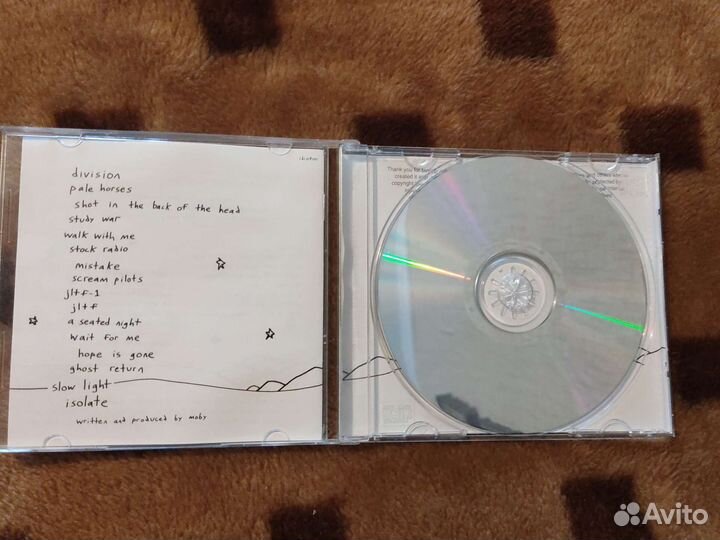 division
pale horses
shot in the back of the head
study war
walk with me
stock radio
mistake
scream pilots
jltf-1
jltf
a seated night
wait for me
hope is gone
ghost return
slow light
isolate
written and produced by moby
Thank you for buying
created it
copyright
Avito